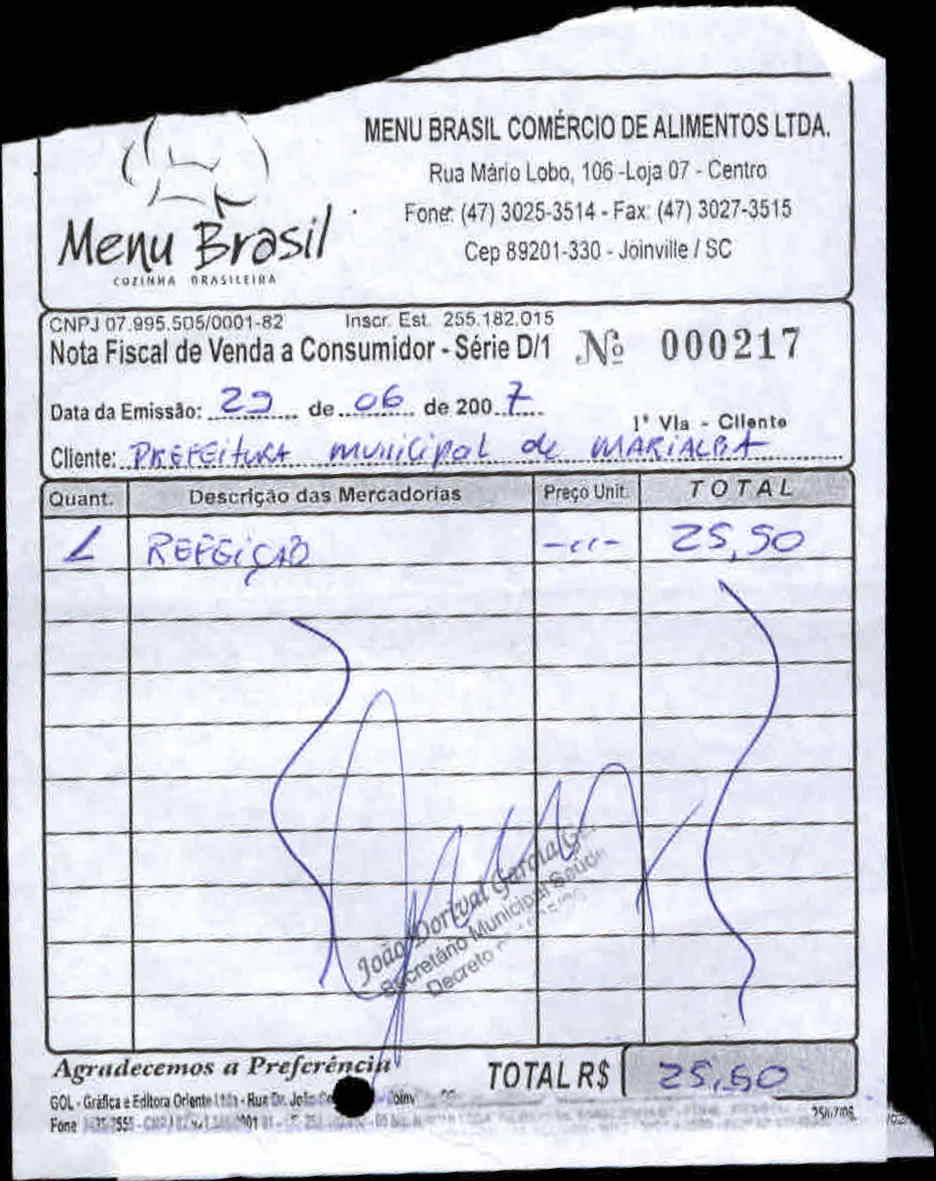 MENU BRASIL COMÉRCIO DE ALIMENTOS LTDA.
Rua Mário Lobo, 106 -Loja 07 - Centro
Fone: (47) 3025-3514 - Fax: (47) 3027-3515
Cep 89201-330 - Joinville / SC
Menu Brasil
COZINHA BRASILEIRA
CNPJ 07.995.505/0001-82 Inscr. Est. 255.182.015
Nota Fiscal de Venda a Consumidor - Série D/1 Nº 000217
Data da Emissão: 29 de 06 de 2007
1ª Via - Cliente
Cliente: PREFEITURA municipal de MARIALBA
Quant. Descrição das Mercadorias Preço Unit. TOTAL
1 REFEIÇÃO -"- 25,50
João Dorival Garcia
Secretário Municipal Saúde
Decreto
Agradecemos a Preferência
TOTAL R$ 25,50
GOL - Gráfica e Editora Oriente Ltda - Rua Dr. João
Fone